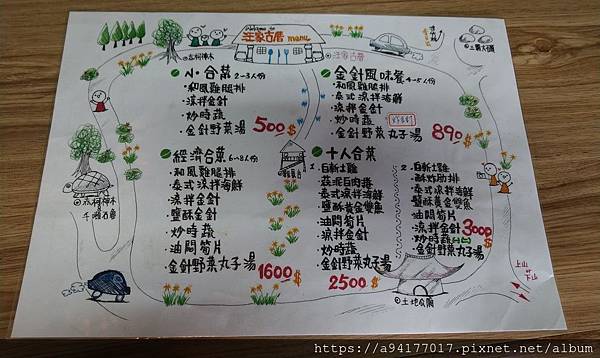 Welcome to
汪家古居 menu
汪家古居
赤柯神木
土雞大橋
小合菜 2-3人份
·和風雞腿排
·涼拌金針
·炒時蔬
·金針野菜湯
500$
金針風味餐 4-5人份
·和風雞腿排
·泰式涼拌海鮮
·涼拌金針
·炒時蔬
·金針野菜丸子湯
890$
經濟合菜 6-8人份
·和風雞腿排
·泰式涼拌海鮮
·鹽酥金針
·炒時蔬
·油悶筍片
·金針野菜丸子湯
1600$
十人合菜
1.·白斬土雞
·蒜泥白肉捲
·泰式涼拌海鮮
·鹽酥黃金雙魚
·油悶筍片
·涼拌金針
·炒時蔬
·金針野菜丸子湯
2500$
2.·白斬土雞
·酥炸肋排
·泰式涼拌海鮮
·鹽酥黃金雙魚
·油悶筍片
·涼拌金針
·炒時蔬
·金針野菜丸子湯
3000$
觀景台
赤柯神木
千禧石龜
土地公廟
上山
or
下山
https://a94177017.pixnet.net/album